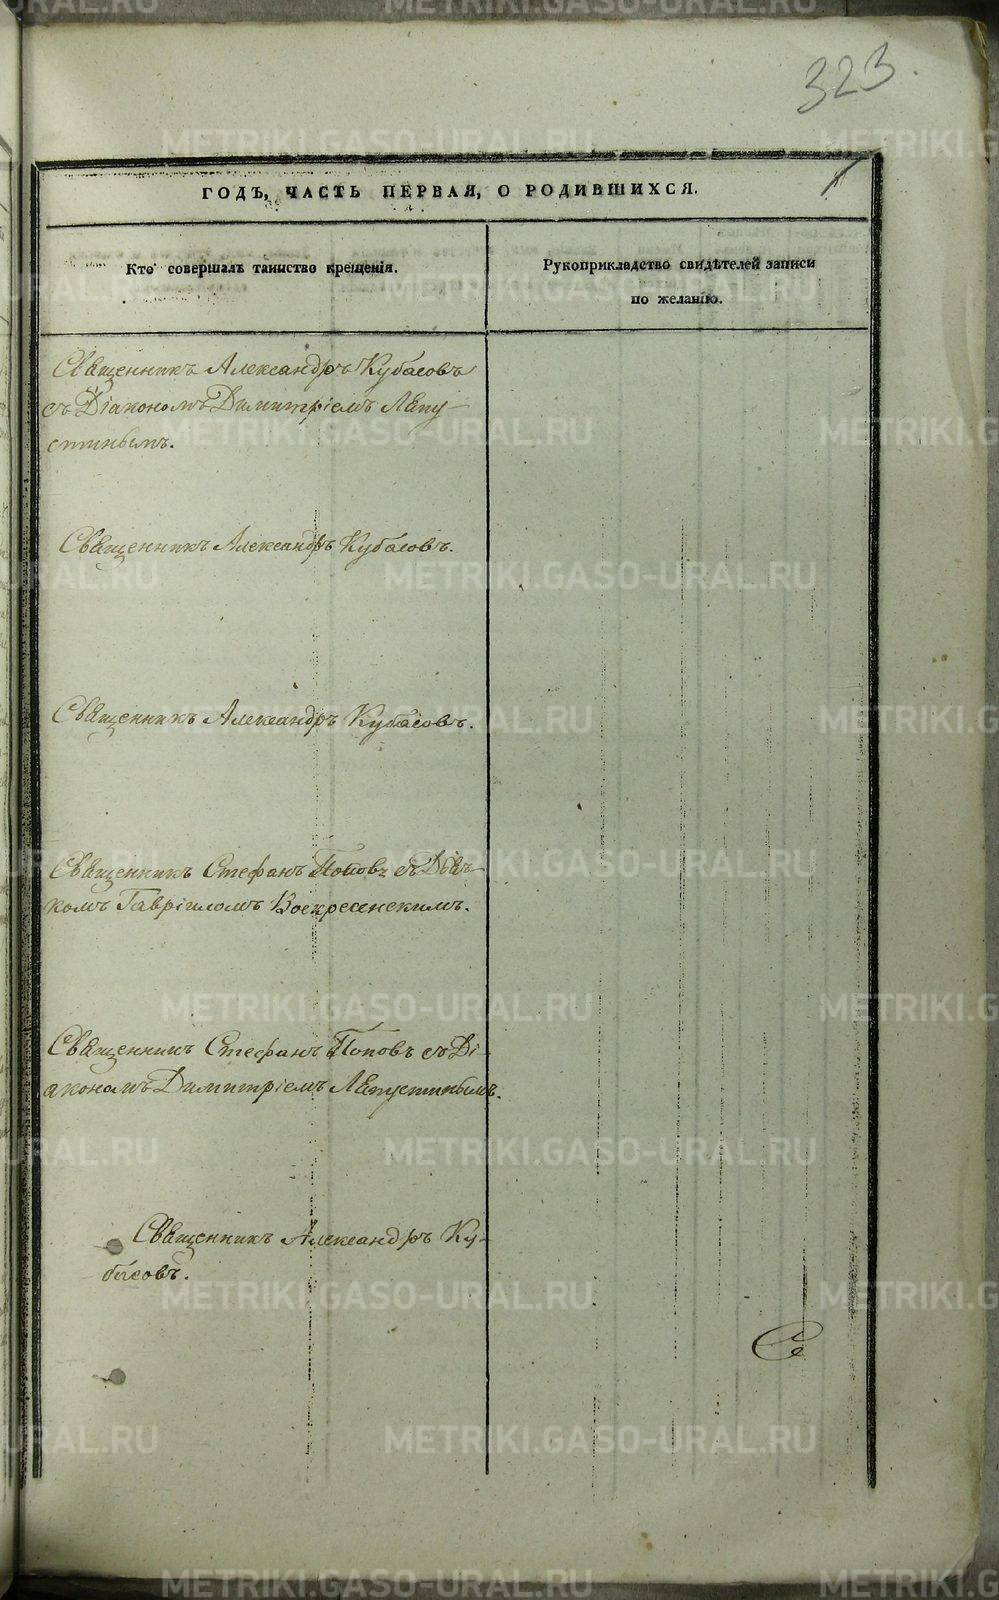 323.
ГОДЪ, ЧАСТЬ ПЕРВАЯ, О РОДИВШИХСЯ.
Кто совершалъ таинство крещенія.
Рукоприкладство свидѣтелей записи
по желанію.
Священникъ Александръ Кубасовъ
съ Діакономъ Димитріемъ Лапу-
стинымъ.
Священникъ Александръ Кубасовъ.
Священникъ Александръ Кубасовъ.
Священникъ Стефанъ Поповъ съ Дьяч-
комъ Гавріиломъ Воскресенскимъ.
Священникъ Стефанъ Поповъ съ Ді-
акономъ Димитріемъ Лапустинымъ.
Священникъ Александръ Ку-
басовъ.
Се
METRIKI.GASO-URAL.RU